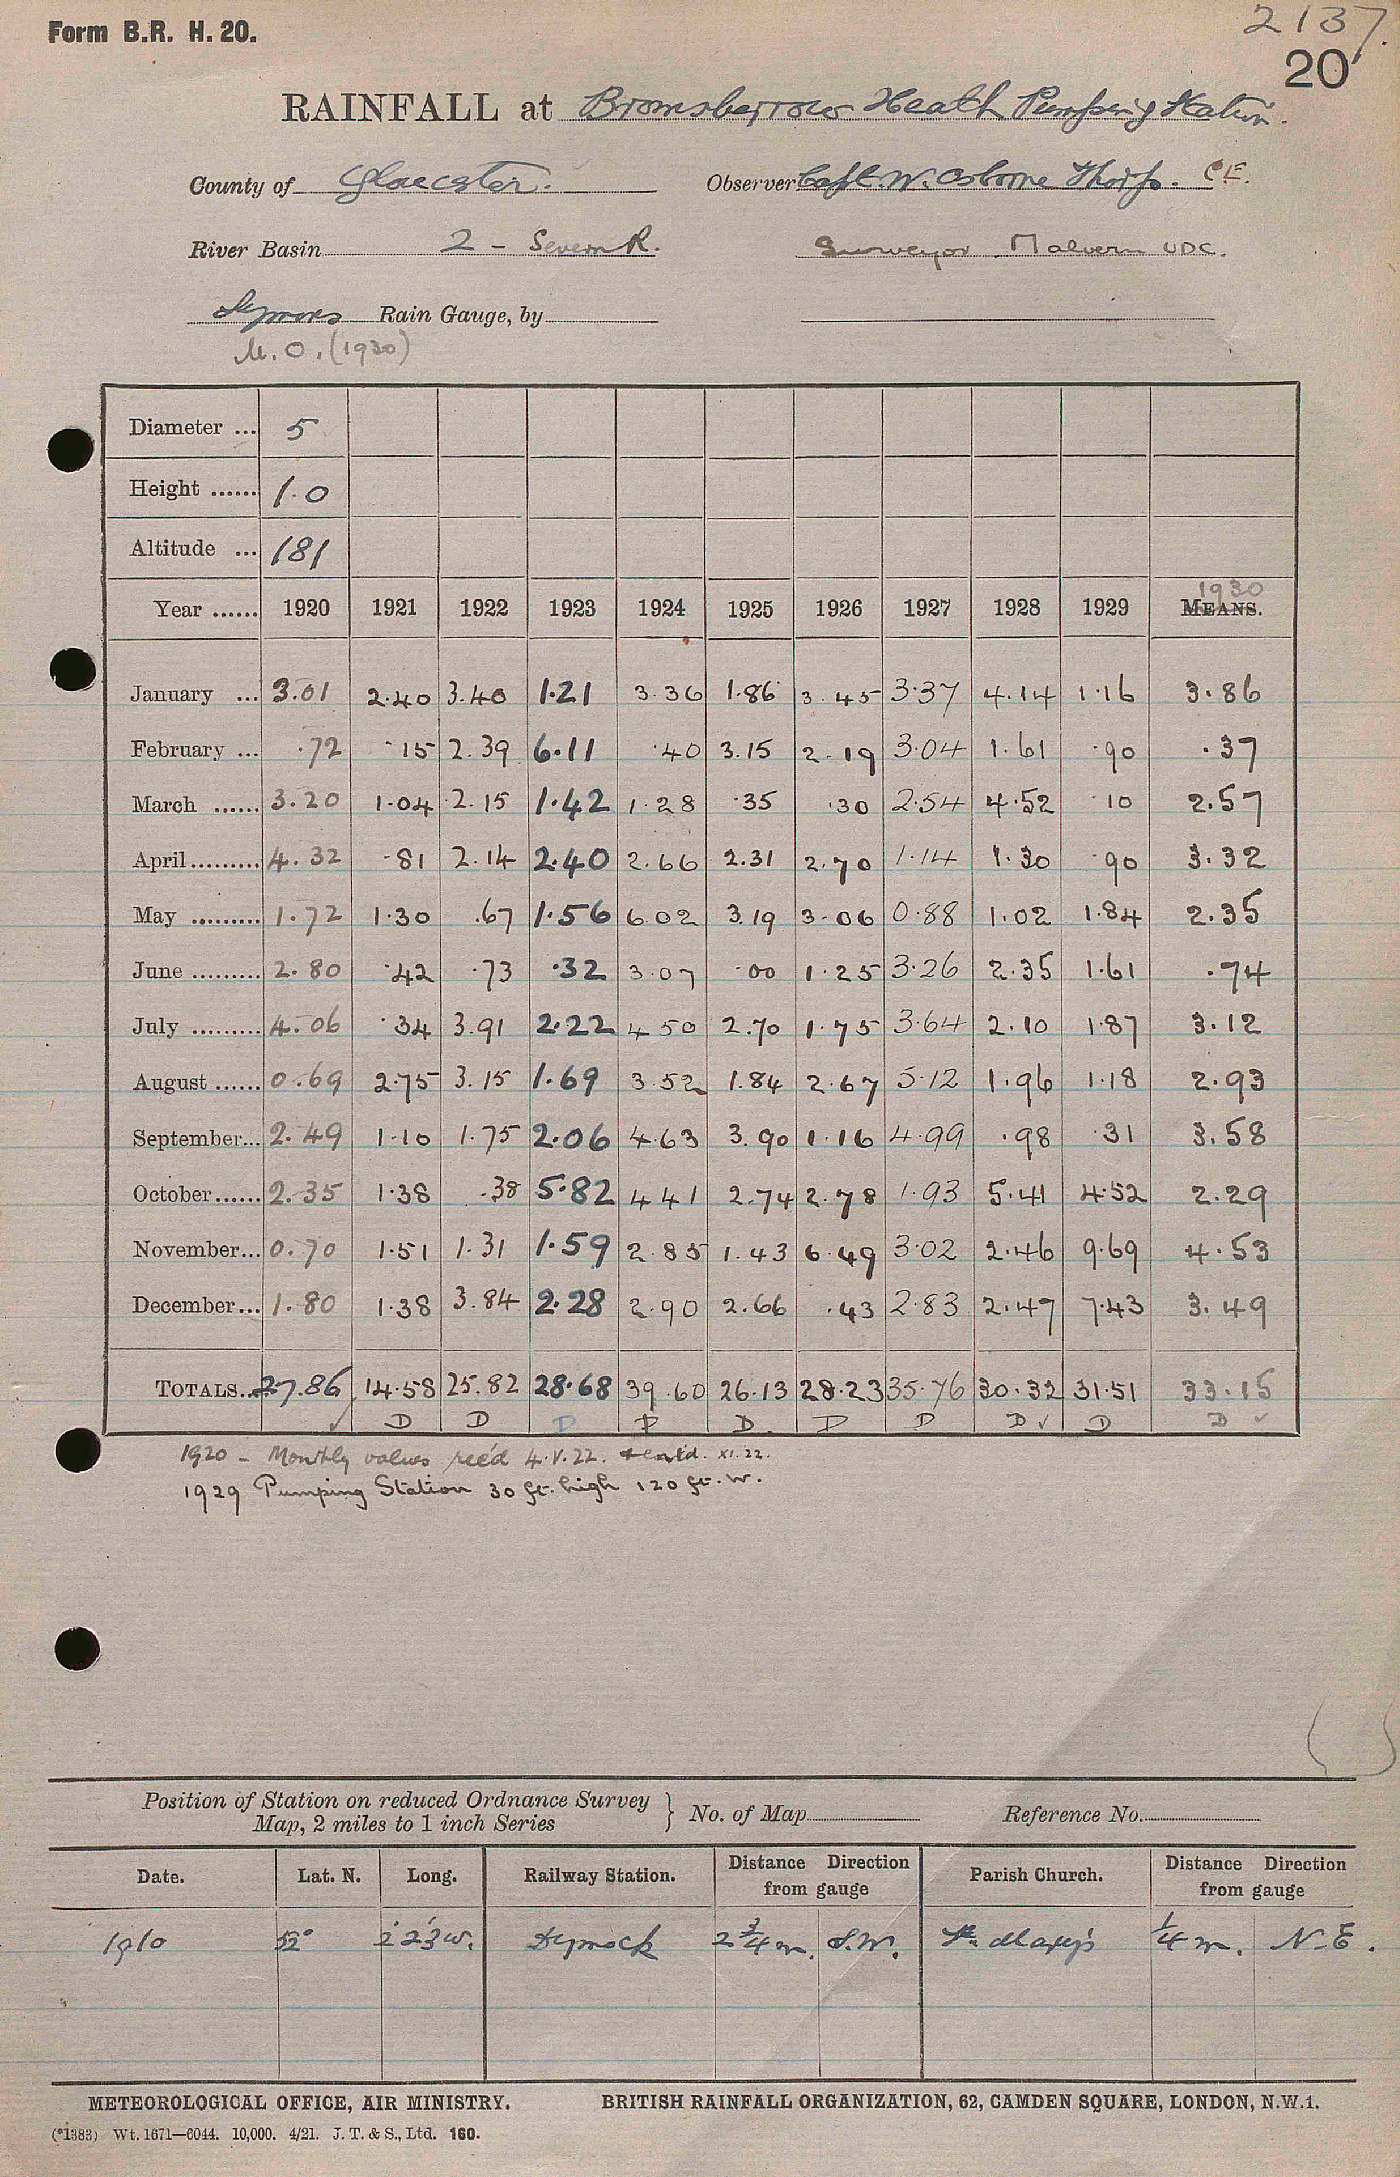 Form B.R. H. 20.
2137.
20
RAINFALL at Bromsberrow Heath Pumping Station.
County of Gloucester. Observer Capt W. Osborne Thorp. C.E.
River Basin 2 - Severn R. Surveyor Malvern UDC.
Symons Rain Gauge, by
M.O. (1930)
Diameter ... 5
Height ...... 1.0
Altitude ... 181
1930
Year ...... 1920 1921 1922 1923 1924 1925 1926 1927 1928 1929 MEANS.
January ... 3.01 2.40 3.40 1.21 3.36 1.86 3.45 3.37 4.14 1.16 3.86
February ... .72 .15 2.39 6.11 .40 3.15 2.19 3.04 1.61 .90 .37
March ...... 3.20 1.04 2.15 1.42 1.28 .35 .30 2.54 4.52 .10 2.57
April ......... 4.32 .81 2.14 2.40 2.66 2.31 2.70 1.14 1.30 .90 3.32
May ......... 1.72 1.30 .67 1.56 6.02 3.19 3.06 0.88 1.02 1.84 2.35
June ......... 2.80 .42 .73 .32 3.07 .00 1.25 3.26 2.35 1.61 .74
July ......... 4.06 .34 3.91 2.22 4.50 2.70 1.75 3.64 2.10 1.87 3.12
August ...... 0.69 2.75 3.15 1.69 3.52 1.84 2.67 5.12 1.96 1.18 2.93
September... 2.49 1.10 1.75 2.06 4.63 3.90 1.16 4.99 .98 .31 3.58
October...... 2.35 1.38 .38 5.82 4.41 2.74 2.78 1.93 5.41 4.52 2.29
November... 0.70 1.51 1.31 1.59 2.85 1.43 6.49 3.02 2.46 9.69 4.53
December... 1.80 1.38 3.84 2.28 2.90 2.66 .43 2.83 2.47 7.43 3.49
TOTALS... 27.86 14.58 25.82 28.68 39.60 26.13 28.23 35.76 30.32 31.51 33.15
✓ D D D D D D D D ✓ D D ✓
1920 - Monthly values rec'd 4.V.22. & ent'd. XI.22.
1929 Pumping Station 30 ft. high 120 ft. W.
Position of Station on reduced Ordnance Survey
Map, 2 miles to 1 inch Series } No. of Map Reference No.
Date. Lat. N. Long. Railway Station. Distance Direction from gauge Parish Church. Distance Direction from gauge
1910 52° 2° 23' W. Dymock 2 3/4 m. S.W. St. Mary's 1/4 m. N.E.
METEOROLOGICAL OFFICE, AIR MINISTRY. BRITISH RAINFALL ORGANIZATION, 62, CAMDEN SQUARE, LONDON, N.W.1.
(*1383) Wt. 1671—6044. 10,000. 4/21. J. T. & S., Ltd. 160.